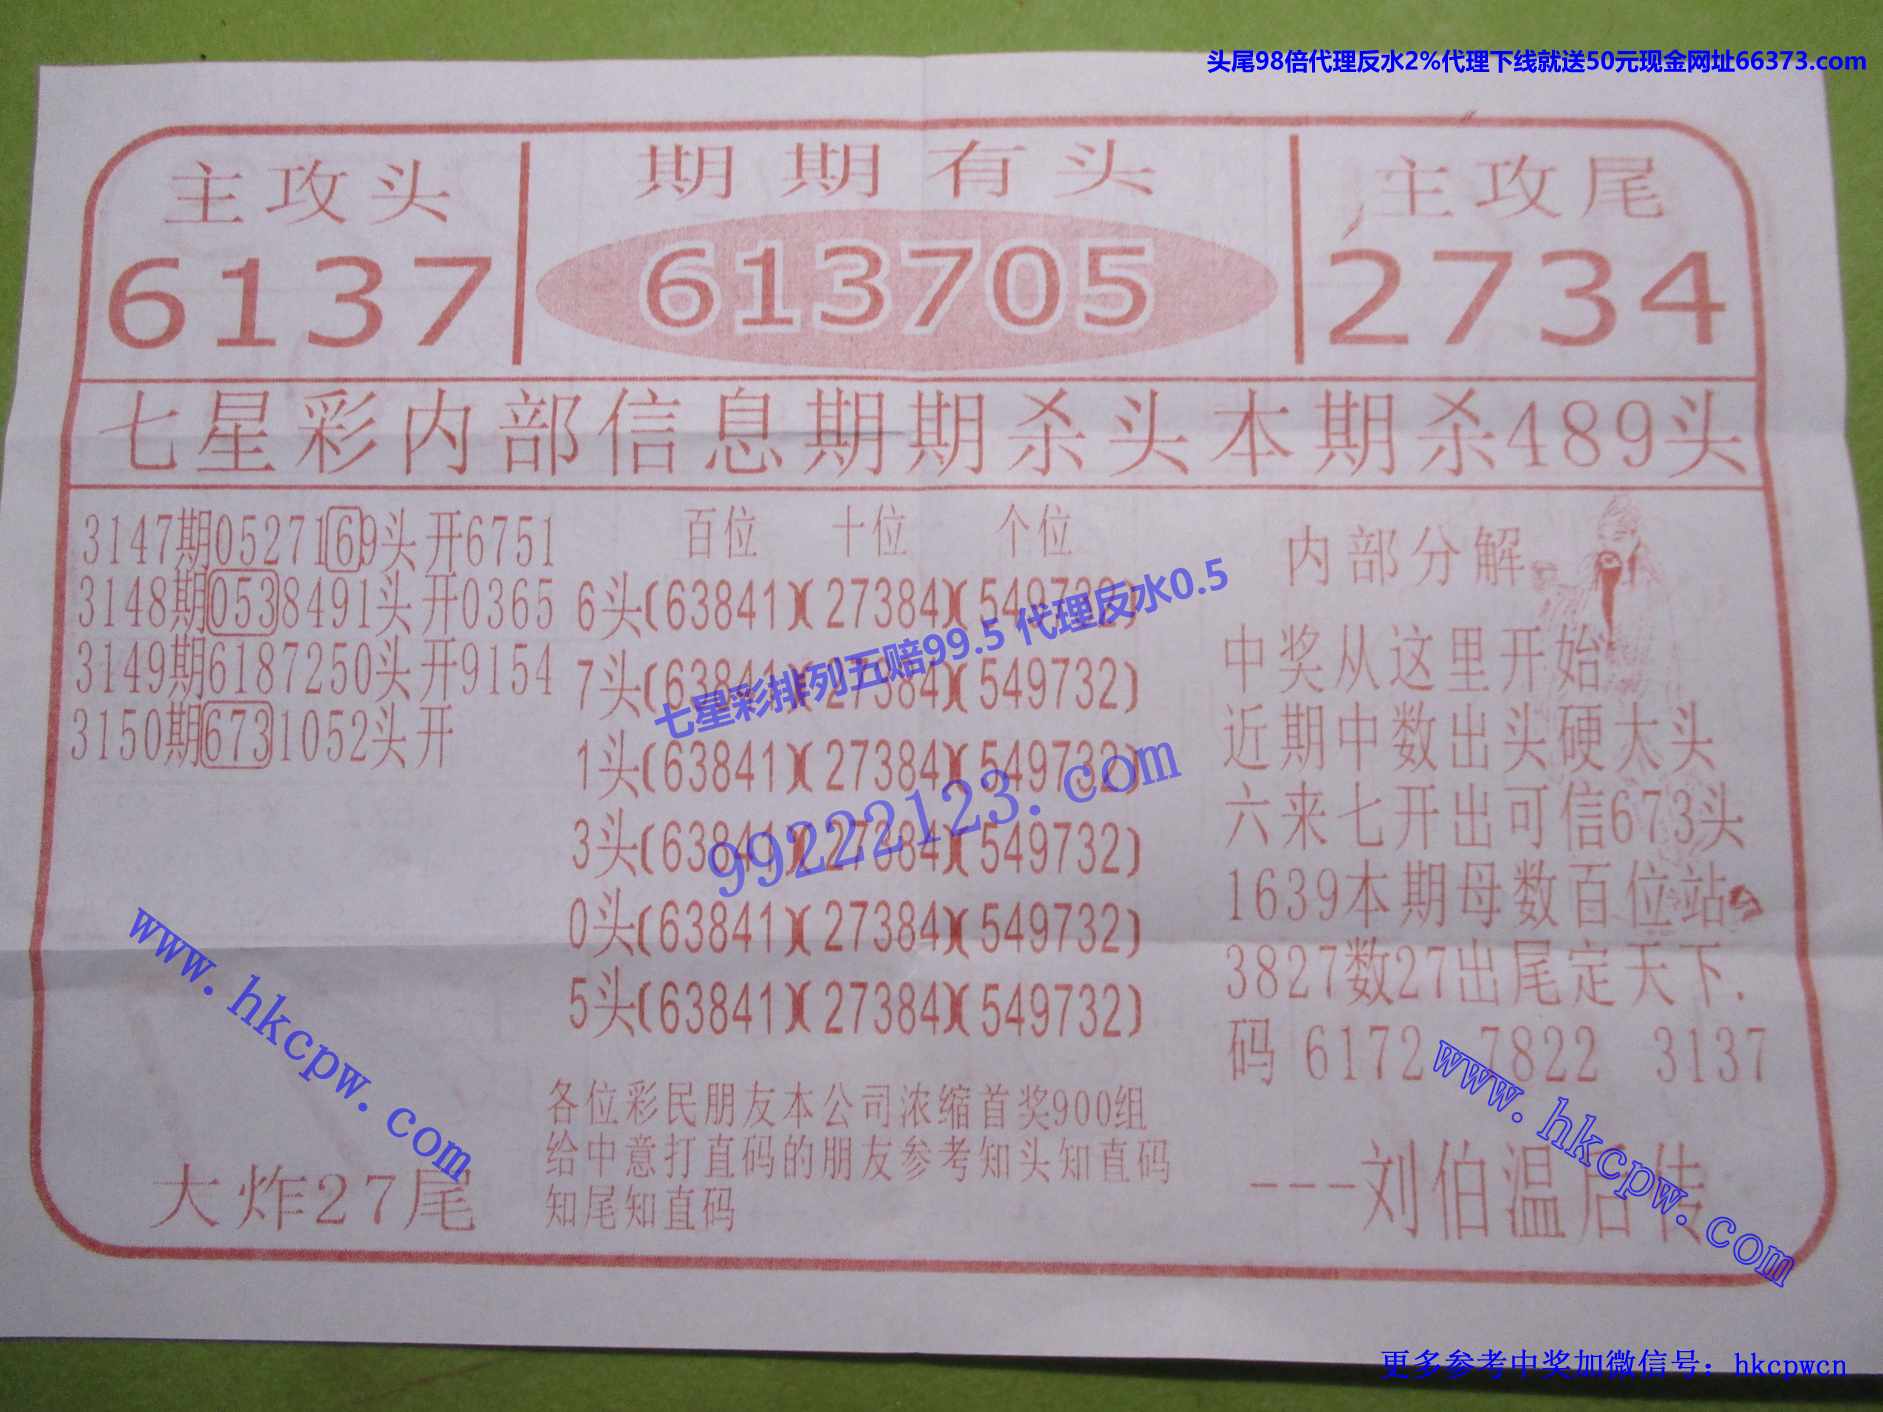 头尾98倍代理反水2%代理下线就送50元现金网址66373.com
主攻头
6137
期期有头
613705
主攻尾
2734
七星彩内部信息期期杀头本期杀489头
3147期0527169头开6751
3148期0538491头开0365
3149期6187250头开9154
3150期6731052头开
百位 十位 个位
6头(63841)(27384)(549732)
7头(63841)(27384)(549732)
1头(63841)(27384)(549732)
3头(63841)(27384)(549732)
0头(63841)(27384)(549732)
5头(63841)(27384)(549732)
七星彩排列五赔99.5 代理反水0.5
99222123.com
内部分解
中奖从这里开始
近期中数出头硬太头
六来七开出可信673头
1639本期母数百位站
3827数27出尾定天下.
码 6172 7822 3137
---刘伯温后传
大炸27尾
各位彩民朋友本公司浓缩首奖900组
给中意打直码的朋友参考知头知直码
知尾知直码
www.hkcpw.com
www.hkcpw.com
更多参考中奖加微信号：hkcpwcn